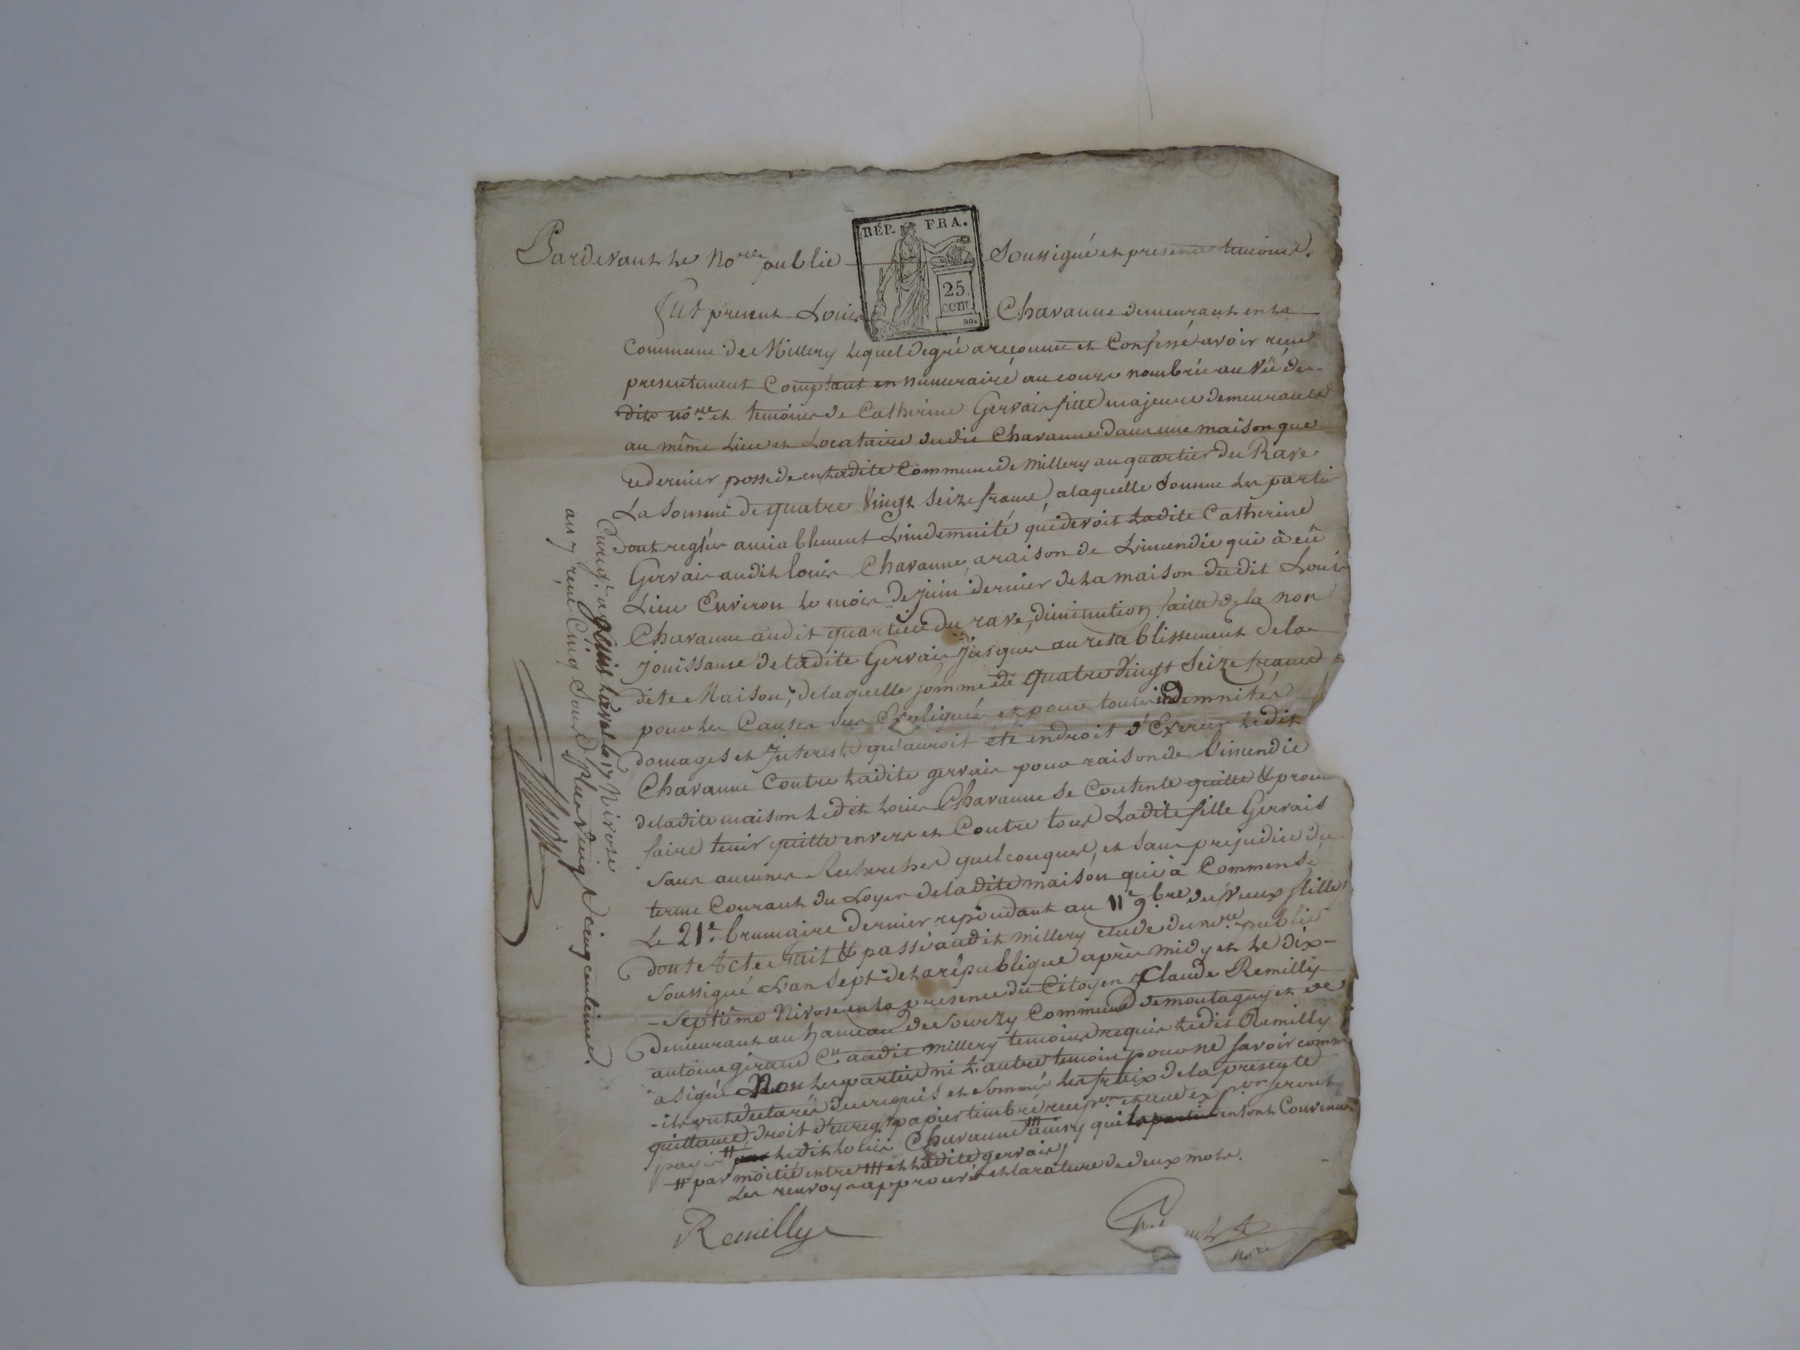 Pardevant le No.re public soussigné et presence temoins.
RÉP. FRA.
25 cent.
fut present Louis Chavanne demeurant en la
Commune de Millery lequel de gré a reconnu et Confessé avoir receu
presentement Comptant en numerairé au cours nombrée au Vêu de
dits no.re et temoins de Catherine Gervais fille majeure demeurante
au même Lieu et Locataire dudit Chavanne dans une maison que
ce dernier possede en ladite Commune de Millery au quartier du Rave
La somme de quatre Vingt seize francs, a laquelle somme les partie
ont reglés amiablement L'indemnité qué devoit ladite Catherine
Gervais audit louis Chavanne, a raison de L'incendie qui à eû
Lieu Environ le mois de juin dernier de la maison dudit Louis
Chavanne audit quartier du rave, diminution faitte de la non
jouissance de ladite Gervais jusques au retablissement de la
dite Maison; de laquelle somme de quatre Vingt Seize francs
pour les Causes sus Expliquées et pour toutes indemnités
domages et Interests qu'auroit eté en droit d'Exercer ledit
Chavanne Contre ladite gervais pour raison de l'incendie
de ladite maison ledit Louis Chavanne se Contente quitte & prom
faire tenir quitte envers et Contre tous Ladite fille Gervais
sans aucunes Recherches quelconques, et sans prejudice du
terme Courant du Loyer de la dite maison qui à Commensé
Le 21e. brumaire dernier repondant au 11e 9.bre du vieux stille
dont Acte fait & passé audit Millery etude du no.re public
soussigné L'an sept de la république après midy et le dix-
-septième Nivose en la presence du Citoyen Claude Remilly
demeurant au hameau de Sourzy Commune de montagny et de
antoine giraud C.u audit Millery temoins requis ledit Remilly
a signé Non les parties ni L'autre temoin pour ne savoir comme
-ils ont declarés de ce requis et sommés les fraix de la presente
quittance, droit d'enreg.t papier timbré recep.on et une ex p.on seront
payés # par ledit Louis Chavanne # ainsy que les parties en sont Convenues
# par moitié entre ### et ladite gervais,
Les renvoys approuvés et la rature de deux mots.
Remilly
no.re
Enreg.é a Givors le 17 Nivose
an 7 reçu Cinq sous plus Vingt cinq centimes